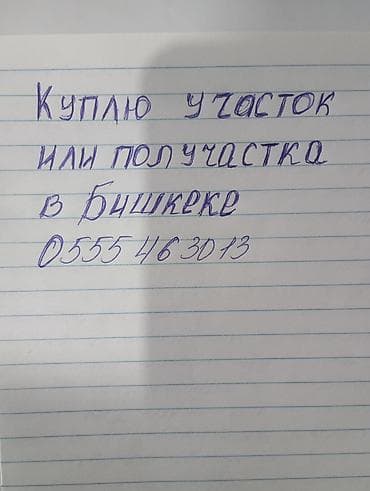 Куплю участок
или получастка
в Бишкеке
0555 463013